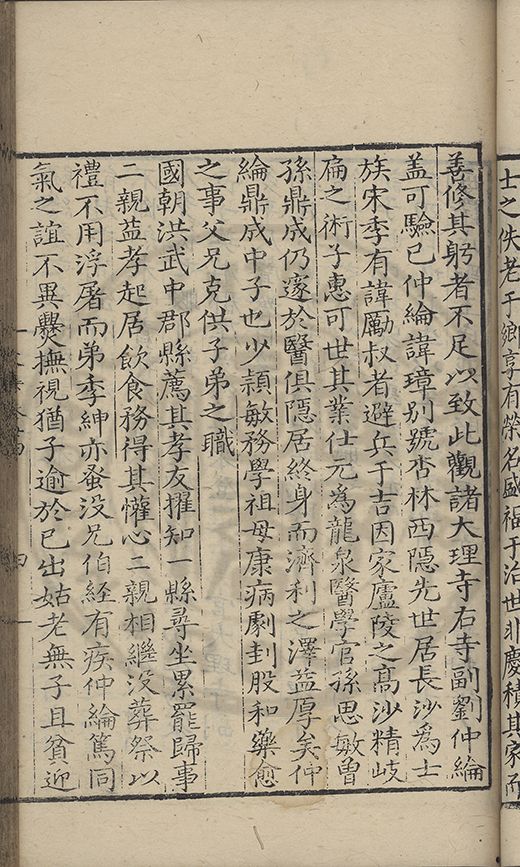 士之佚老于鄉享有榮名盛福于治世非慶積其家而
善修其躬者不足以致此觀諸大理寺右寺副劉仲綸
盖可驗已仲綸諱璋别號杏林西隠先世居長沙為士
族宋季有諱勵叔者避兵于吉因家廬陵之髙沙精岐
扁之術子惠可世其業仕元為龍泉醫學官孫思敏曽
孫鼎成仍遂於醫俱隠居終身而濟利之澤益厚矣仲
綸鼎成中子也少頴敏務學祖母康病劇刲股和藥愈
之事父兄克供子弟之職
國朝洪武中郡縣薦其孝友擢知一縣尋坐累罷歸事
二親益孝起居飲食務得其懽心二親相繼没葬祭以
禮不用浮屠而弟季紳亦蚤没兄伯経有疾仲綸篤同
氣之誼不異爨撫視猶子逾於已出姑老無子且貧迎